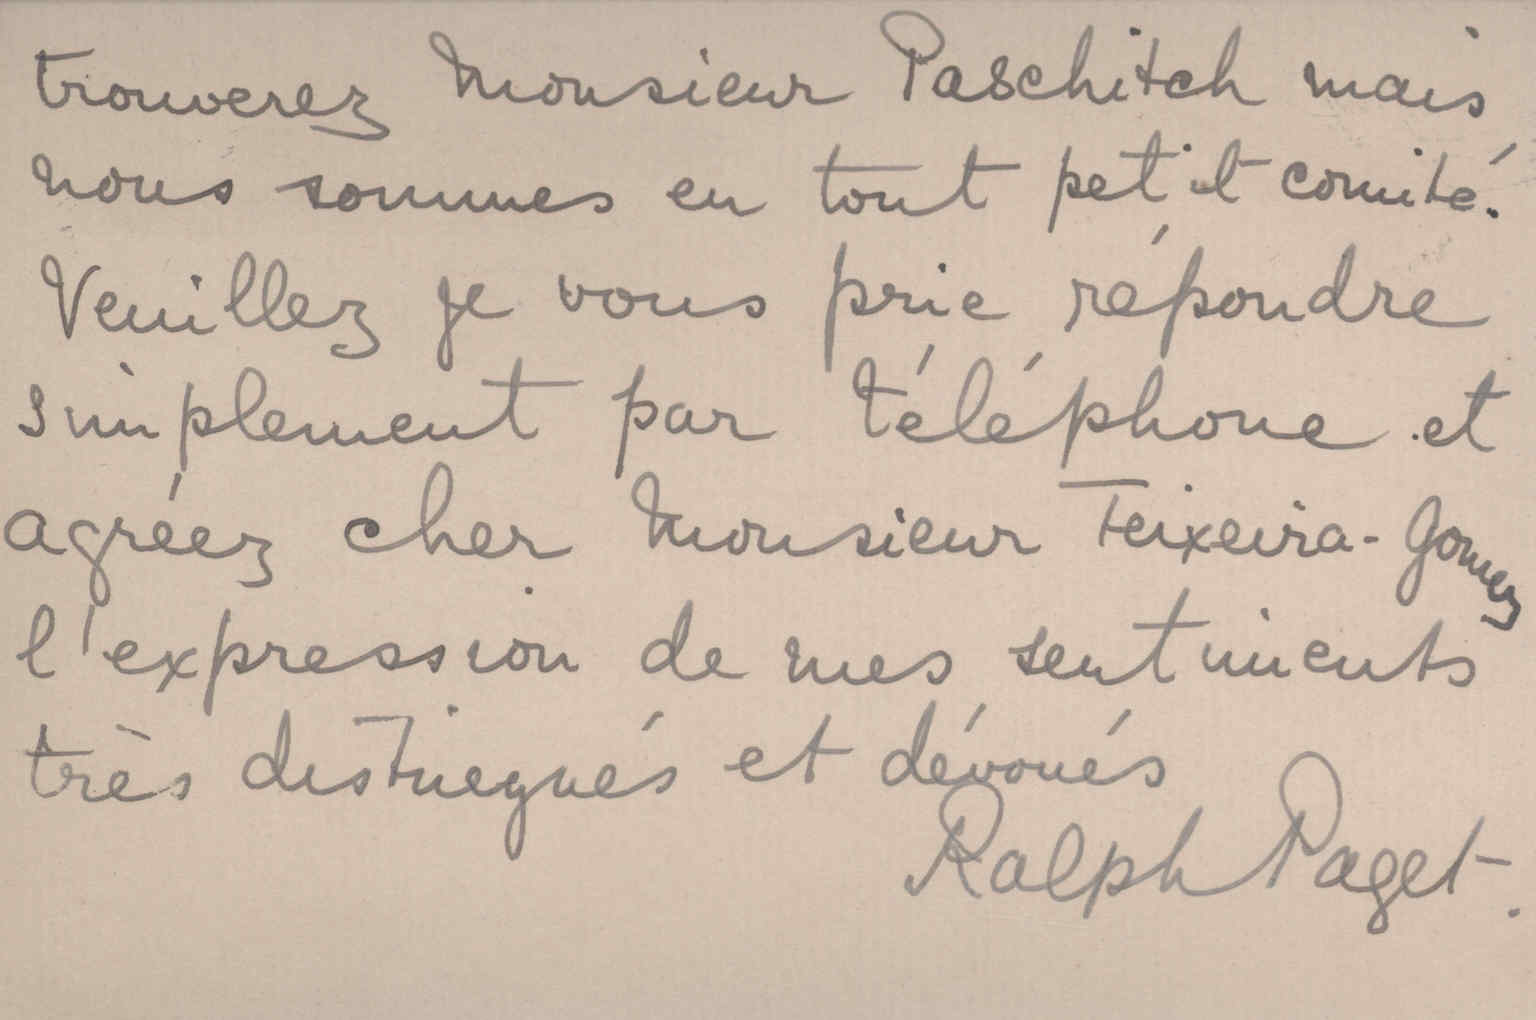 trouverez Monsieur Paschitch mais
nous sommes en tout petit comité.
Veuillez je vous prie répondre
simplement par téléphone et
agréez cher Monsieur Teixeira-Gomez
l'expression de mes sentiments
très distingués et dévoués
Ralph Paget.